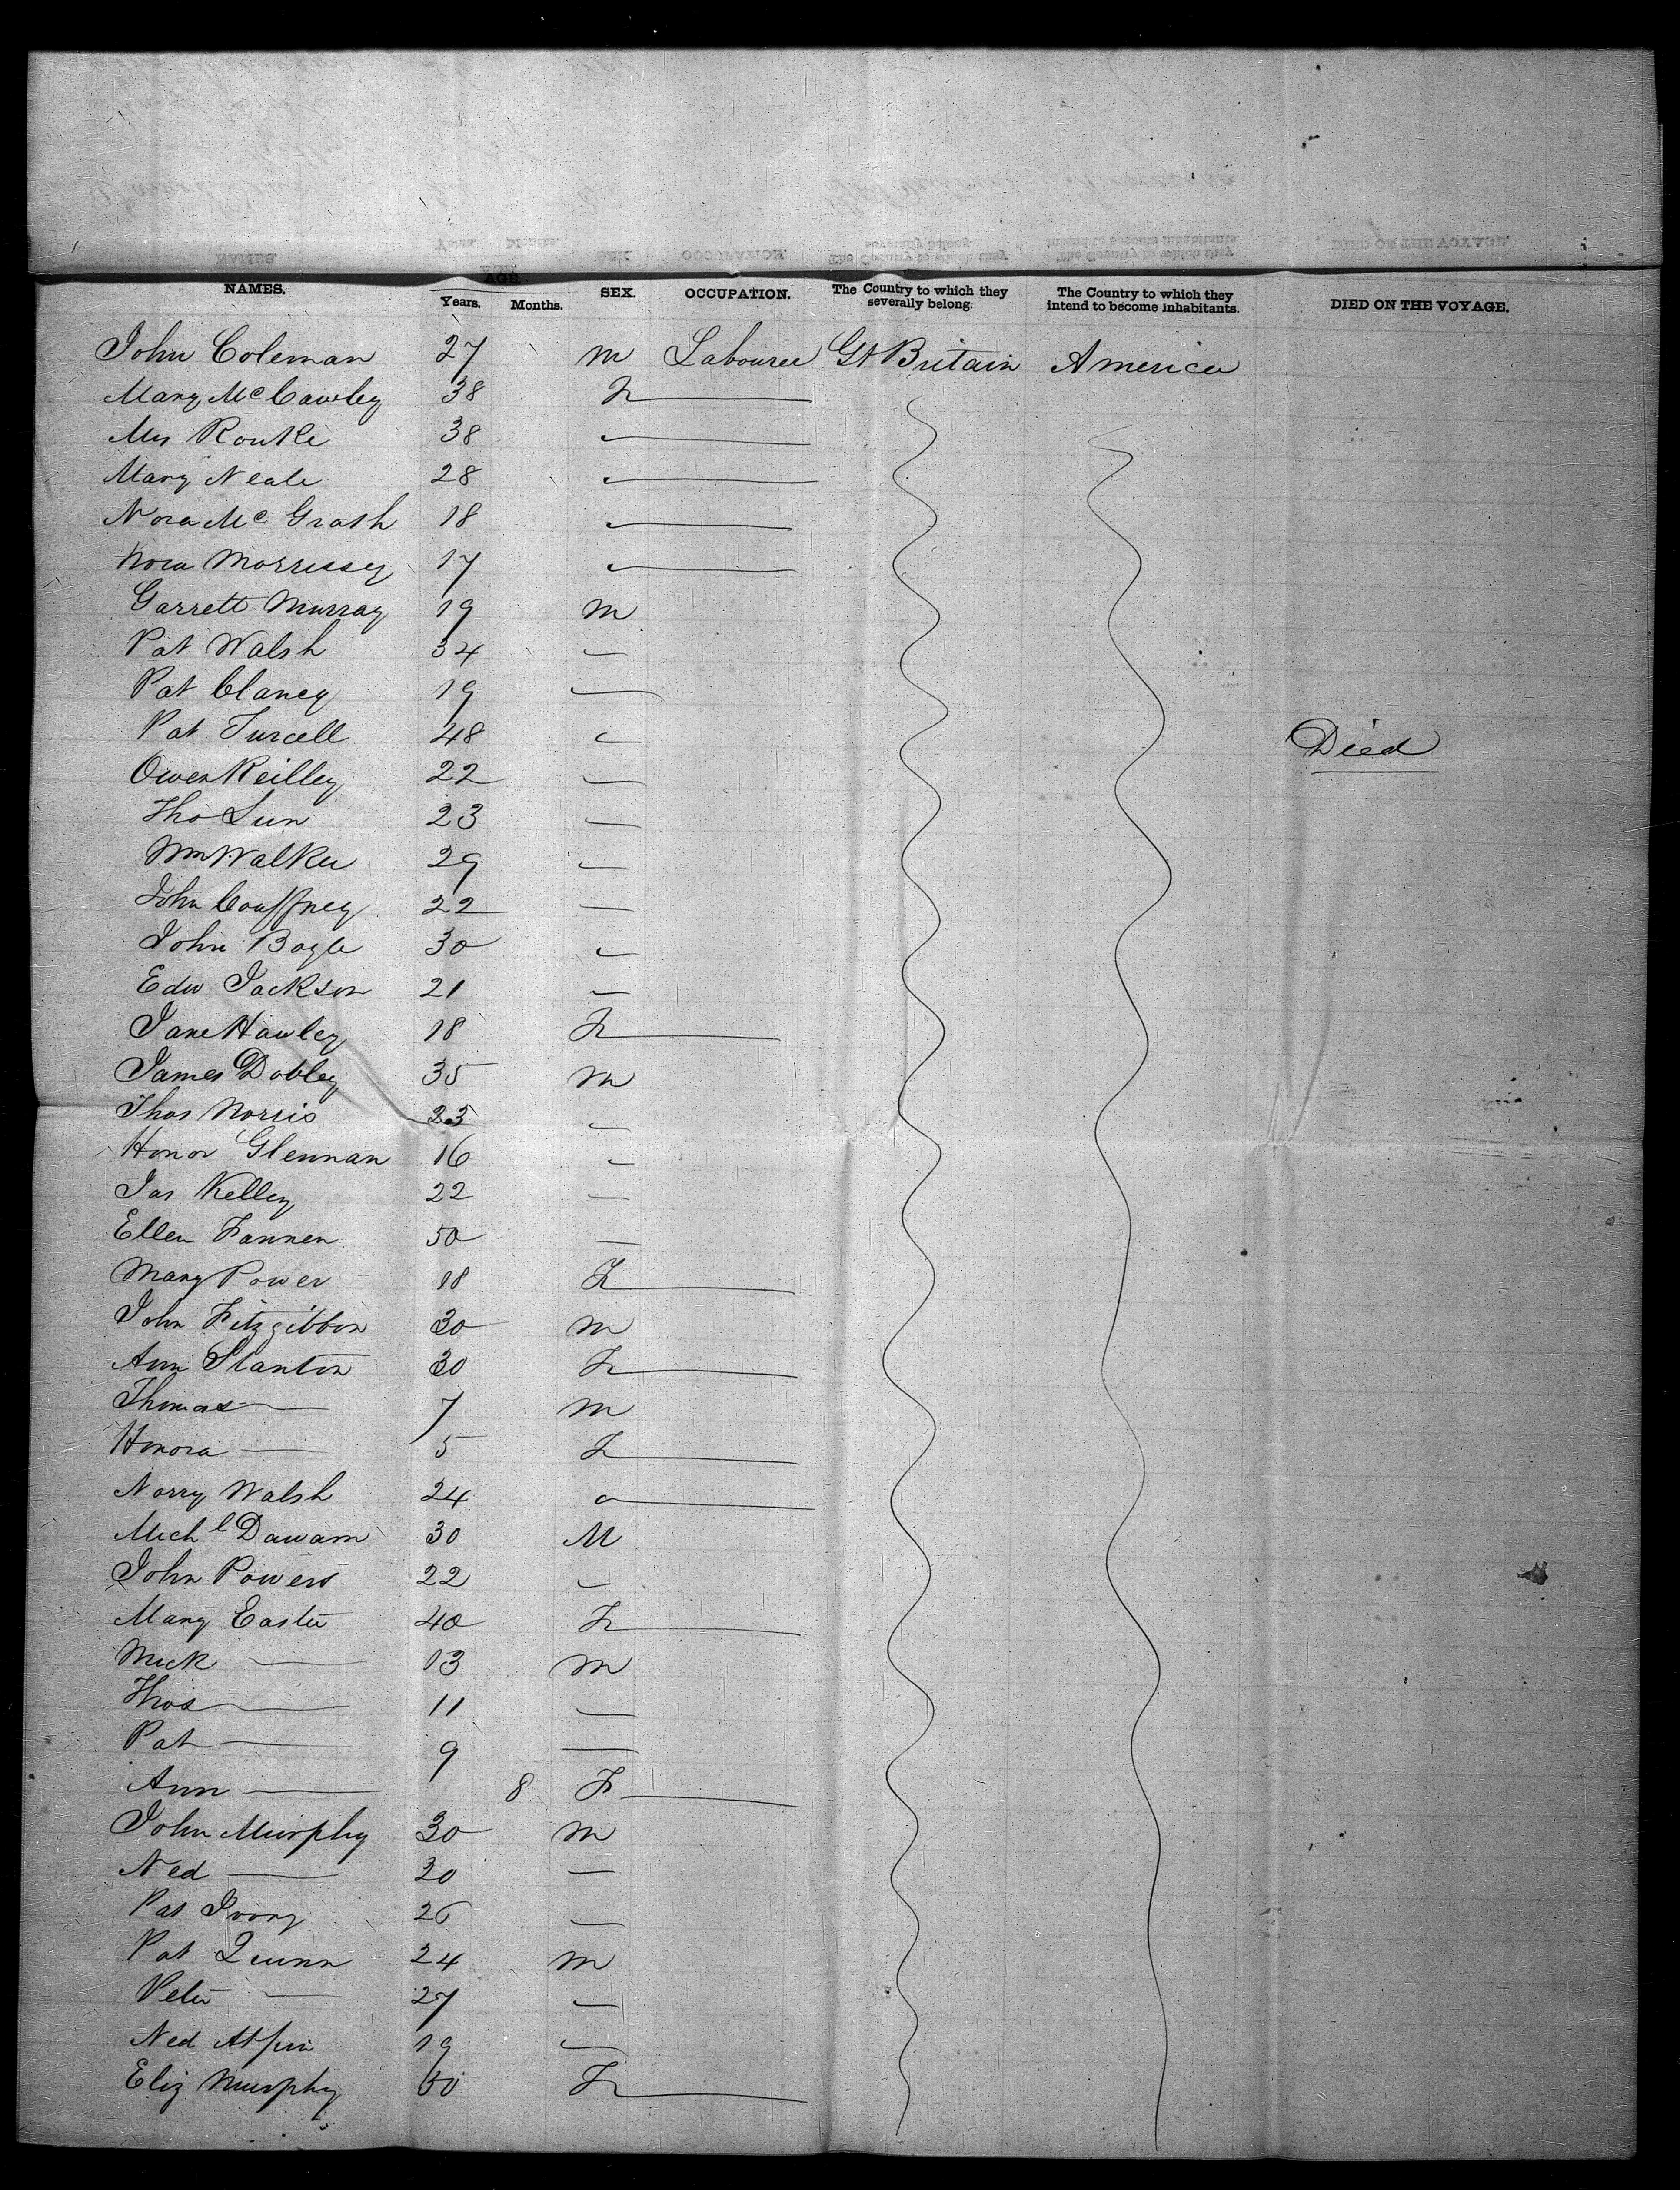 NAMES. AGE. Years. Months. SEX. OCCUPATION. The Country to which they severally belong. The Country to which they intend to become inhabitants. DIED ON THE VOYAGE.
John Coleman 27 m Labourer Gt Britain America
Mary McCawley 38 F
Mrs Rourke 38
Mary Neale 28
Nora McGrath 18
Nora Morrissey 17
Garrett Murray 19 m
Pat Walsh 34
Pat Clancy 19
Pat Turcell 48 Died
Owen Reilley 22
Tho 23
Wm Walker 29
John 22
John Bogle 30
Edw Jackson 21
Jane Hawley 18 F
James Dobley 35 m
Thos Norris 23
Honor Glennan 16
Jas Kelley 22
Ellen Fannen 50
Mary Power 18 F
John Fitzgibbon 30 m
Ann Stanton 30 F
Thomas — 7 m
Honora — 5 F
Norry Walsh 24
Michl Dawam 30 M
John Powers 22
Mary Easter 40 F
Mick — 13 m
Thos — 11
Pat — 9
Ann — 8 F
John Murphy 30 m
Ned — 20
Pat Ivory 26
Pat Quinn 24 m
Peter — 27
Ned 19
Eliz Murphy 50 F